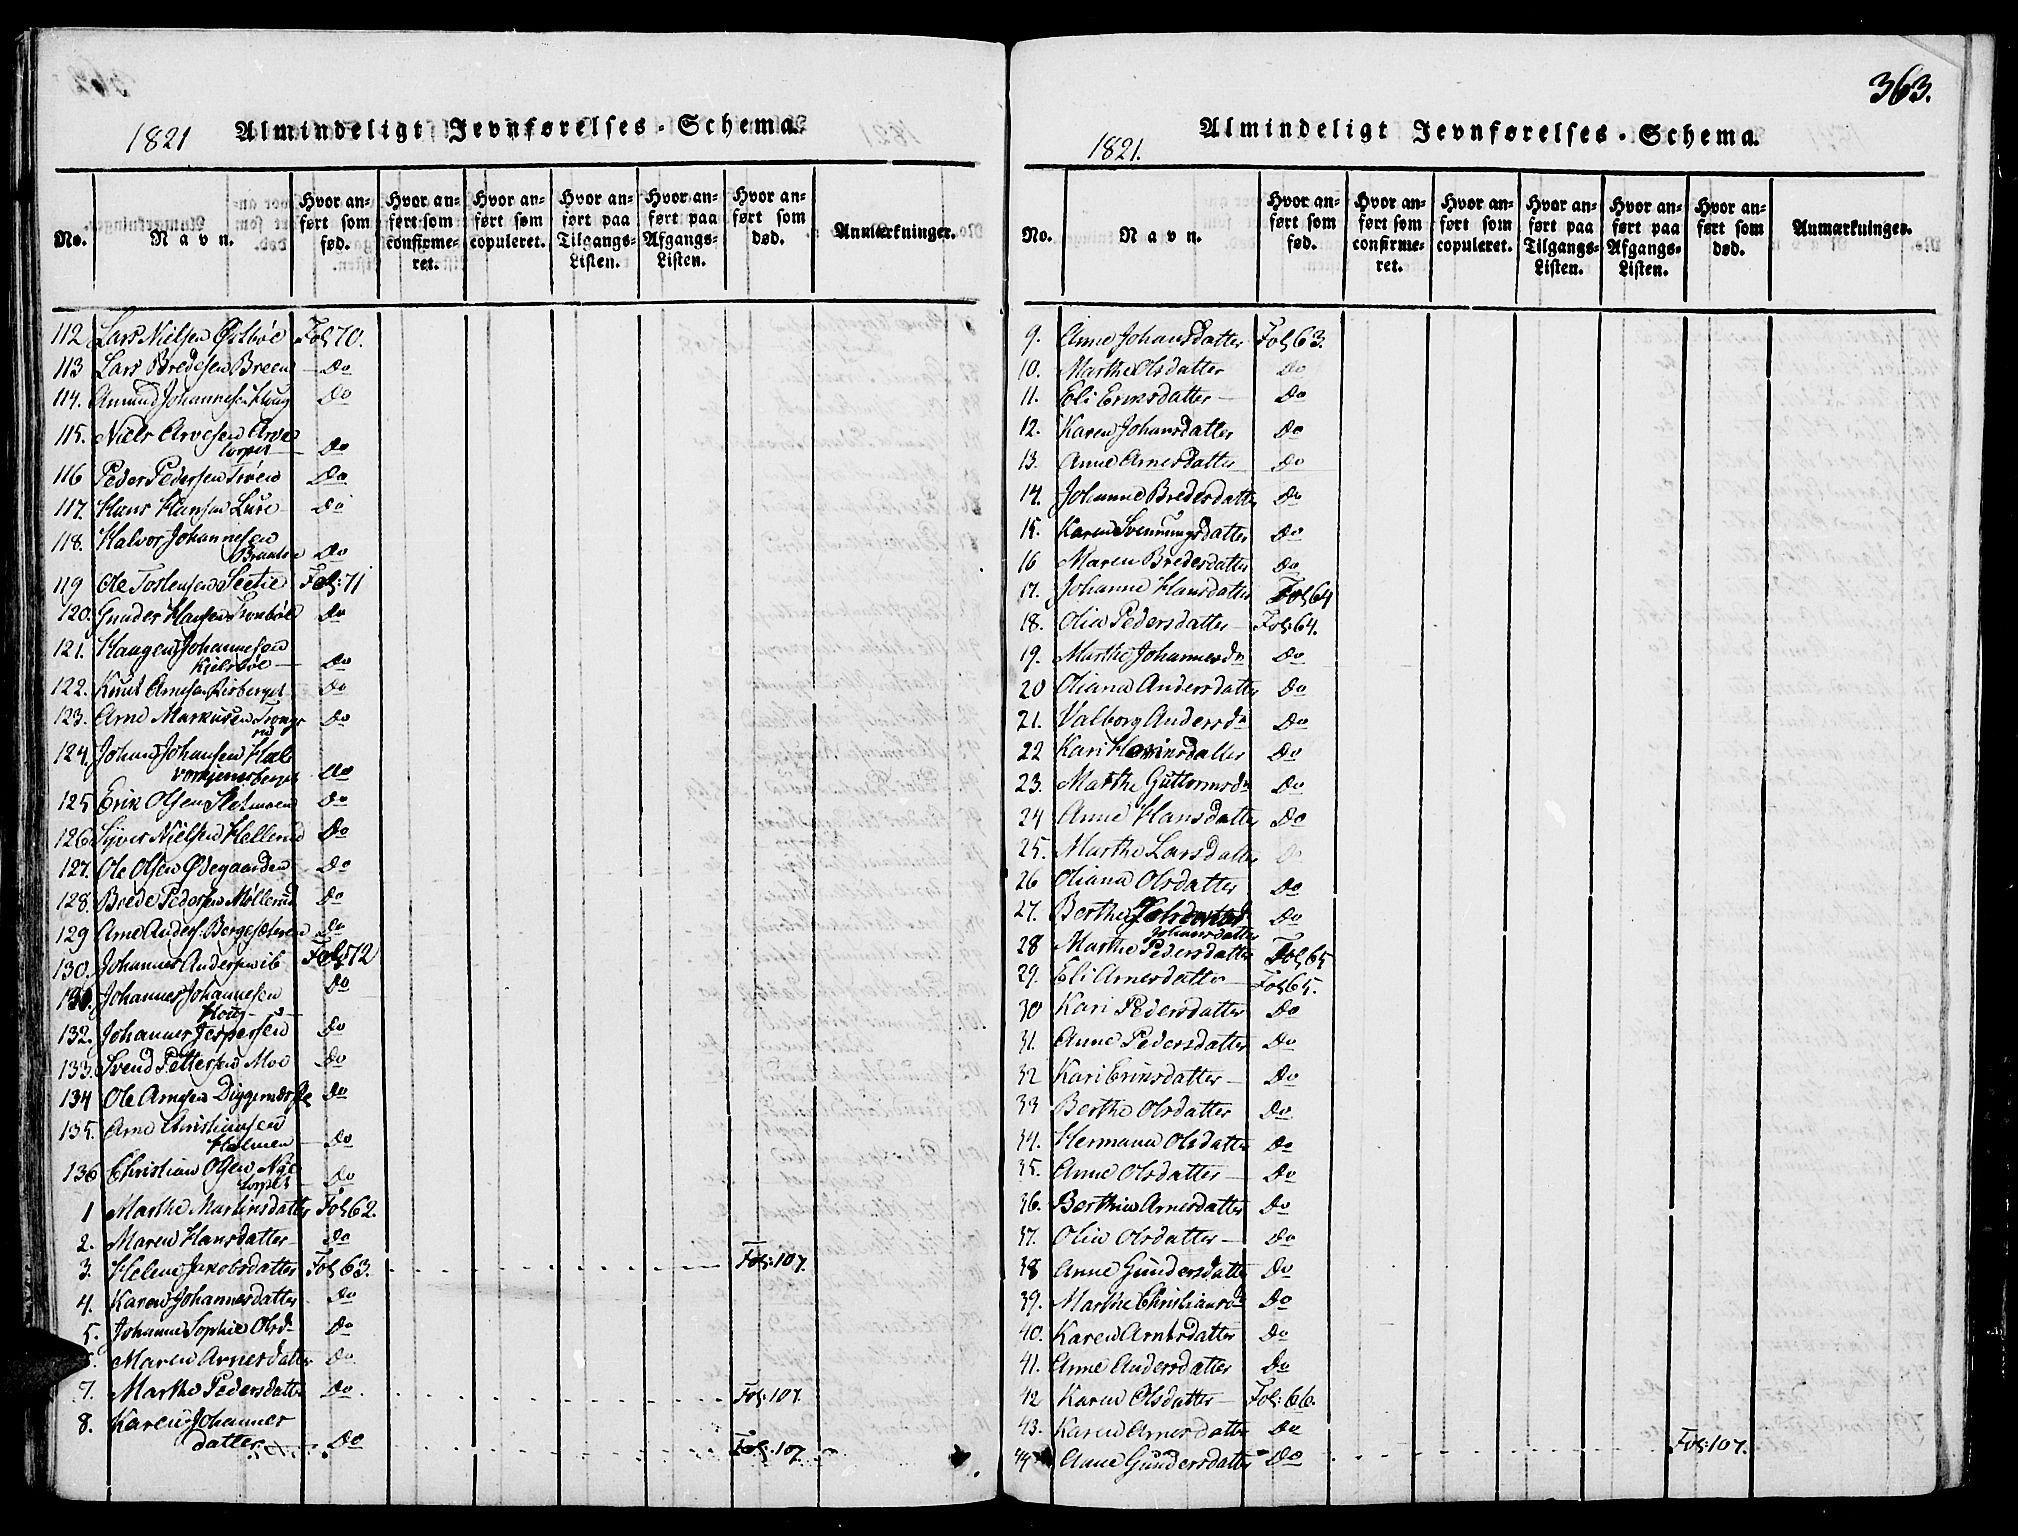 1821 Almindeligt Jevnførelses-Schema.
No.
Navn.
Hvor an-
ført som
fød.
Hvor an-
ført som
confirme-
ret.
Hvor an-
ført som
copuleret.
Hvor an-
ført paa
Tilgangs-
Listen.
Hvor an-
ført paa
Afgangs-
Listen.
Hvor an-
ført som
død.
Anmærkninger.
112 Lars Nielsen Østbøe Fol 70.
113 Lars Bredesen Breen Do
114. Amund Johannesen Houg Do
115. Niels Arnesen Arne
torpet Do
116 Peder Pedersen Trøen Do
117. Hans Hansen Lure Do
118. Halvor Johannesen
Do
119 Ole Torstensen Do Fol: 71
120. Gunder Hansen Do
121. Haagen Johannesen
Kielsbøe Do
122. Knut Arnesen Risberget Do
123. Arne Markusen Do
124. Johan Johansen Hal
vorhjemsberget Do
125 Erik Olsen Do
126 Syver Nielsen Hellerud Do
127. Ole Olsen Ødegaarden Do
128. Brede Pedersen Møllerud Do
129 Arne Anders: Bergesæteren Do
130. Johannes Andersen ib Fol: 72
131. Johannes Johannesen
Houg Do
132. Johannes Jespersen Do
133. Svend Pettersen Moe Do
134 Ole Arnesen Do
135. Arne Christiansen
Holmen Do
136 Christian Olsen Nye
torpet Do
1 Marthe Martinsdatter Fol 62.
2. Maren Hansdatter Do
3. Helene Jakobsdatter Fol 63. Fol: 107.
4. Karen Johannesdatter Do
5. Johanne Sophie Olsd Do
6. Maren Arnesdatter Do
7. Marthe Pedersdatter Do. Fol: 107.
8. Karen Johannes
datter Do Fol: 107.
363.
1821. Almindeligt Jevnførelses-Schema.
No.
Navn.
Hvor an-
ført som
fød.
Hvor an-
ført som
confirme-
ret.
Hvor an-
ført som
copuleret.
Hvor an-
ført paa
Tilgangs-
Listen.
Hvor an-
ført paa
Afgangs-
Listen.
Hvor an-
ført som
død.
Anmærkninger.
9. Anne Johansdatter Fol 63.
10. Marthe Olsdatter Do
11. Eli Eriksdatter Do
12. Karen Johansdatter Do
13. Anne Arnesdatter Do
14. Johanne Bredesdatter Do
15. Karen Svenningsdatter Do
16 Maren Bredesdatter Do
17. Johanne Hansdatter Fol 64
18. Olia Pedersdatter Fol: 64.
19. Marthe Johannesd Do
20 Oliana Andersdatter Do
21. Valborg Andersd Do
22 Kari Do
23. Marthe Guttormsd Do
24 Anne Hansdatter Do
25. Marthe Larsdatter Do
26 Oliana Olsdatter Do
27. Berthe Do
Johansdatter
28 Marthe Pedersdatter Fol 65
29. Eli Arnesdatter Fol 65.
30 Kari Pedersdatter Do
31. Anne Pedersdatter Do
32 Kari Eriksdatter Do
33 Berthe Olsdatter Do
34. Hermana Olsdatter Do
35. Anne Olsdatter Do
36. Berthe Arnesdatter Do
37. Olia Olsdatter Do
38 Anne Gundersdatter Do
39. Marthe Christiansd Do
40. Karen Arnesdatter Do
41. Anne Andersdatter Do
42 Karen Olsdatter Fol: 66.
43. Karen Arnesdatter Do
44 Anne Gundersdatter Do Fol: 107.